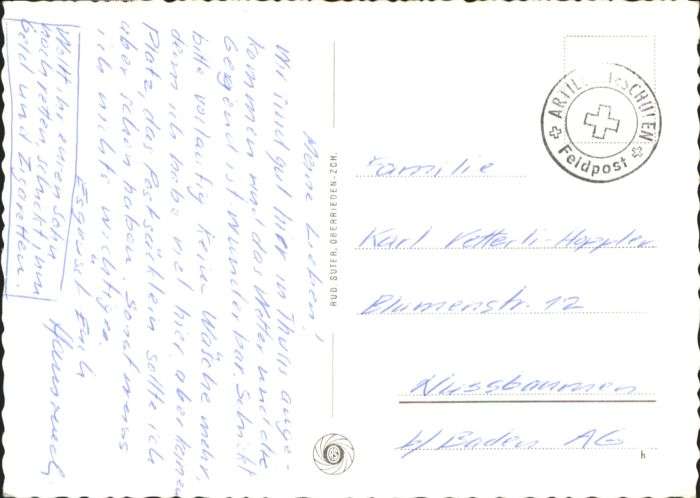 Meine Lieben!
Wir sind gut hier in Thun ange-
kommen und das Wetter und die
Gegend ist wunderbar. Schickt
bitte vorläufig keine Wäsche mehr,
denn ich habe viel hier, aber keinen
Platz, das Postsäcklein sollte ich
aber schon haben. Sonst weiss
ich nichts wichtiges.
Es grüsst Euch
Hansruedi
Wollt ihr euren Sohn
noch retten, schickt ihm
Geld und Zigaretten.
RUD. SUTER, OBERRIEDEN-ZCH.
ARTILLERIESCHULEN
Feldpost
Familie
Karl Vetterli-Hoppler
Blumenstr. 12
Nussbaumen
b/Baden AG
h